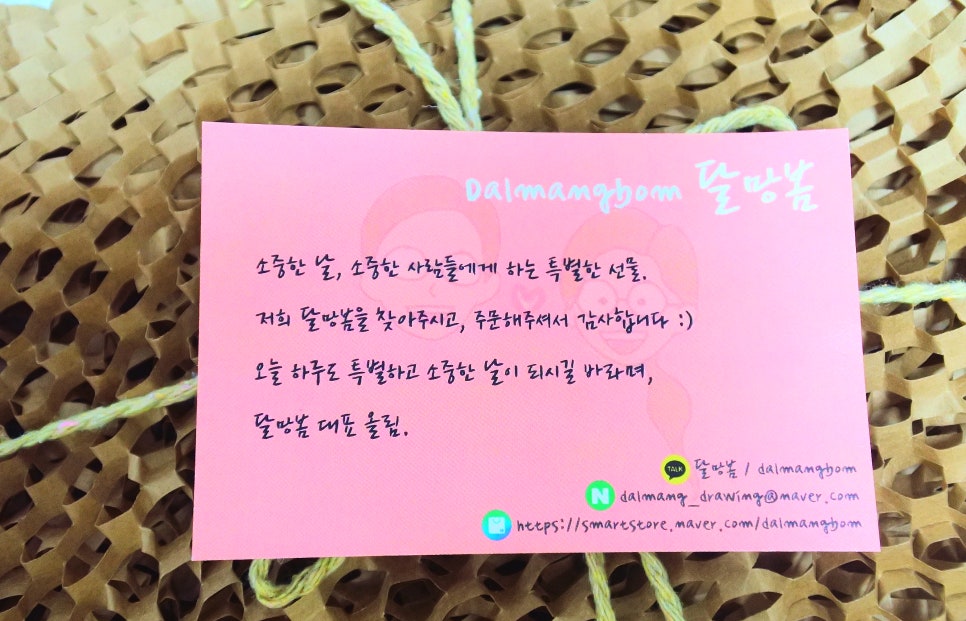 Dalmangbom 달망봄
소중한 날, 소중한 사람들에게 하는 특별한 선물.
저희 달망봄을 찾아주시고, 주문해주셔서 감사합니다 :)
오늘 하루도 특별하고 소중한 날이 되시길 바라며,
달망봄 대표 올림.
TALK 달망봄 / dalmangbom
N dalmang_drawing@naver.com
https://smartstore.naver.com/dalmangbom